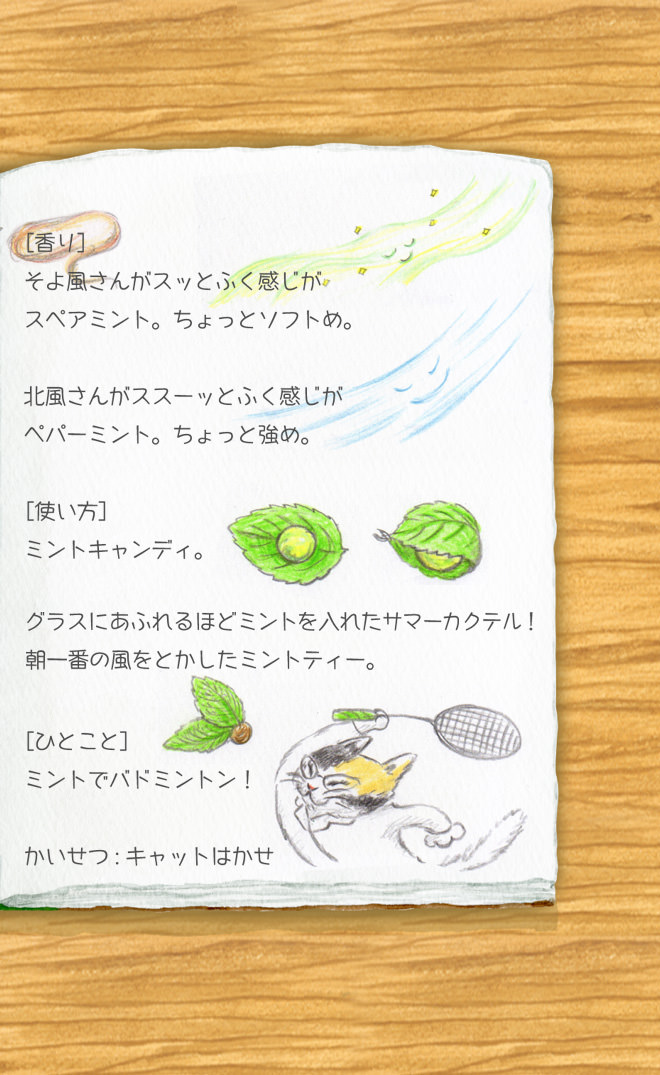 [香り]
そよ風さんがスッとふく感じが
スペアミント。ちょっとソフトめ。
北風さんがススーッとふく感じが
ペパーミント。ちょっと強め。
[使い方]
ミントキャンディ。
グラスにあふれるほどミントを入れたサマーカクテル！
朝一番の風をとかしたミントティー。
[ひとこと]
ミントでバドミントン！
かいせつ：キャットはかせ